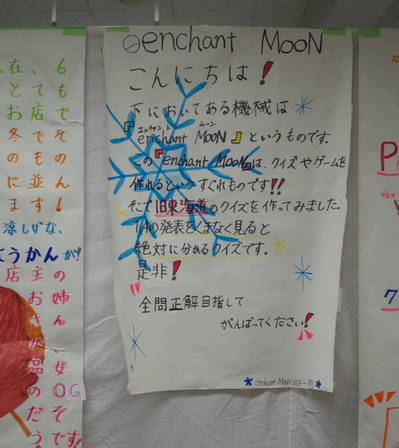 enchant MOON
こんにちは!
下においてある機械は
エンチャント ムーン
『enchant MOON』というものです。
この『enchant MOON』は、クイズやゲームを
作れるというすぐれものです!!
そこで旧東海道のクイズを作ってみました。
1Aの発表をくまなく見ると
絶対に分かるクイズです。
是非!
全問正解目指して
がんばってください!
在、6
とても
お店で
冬でそ
のもの
に並ん
ます!
うかんが
店主の
OG
です
7